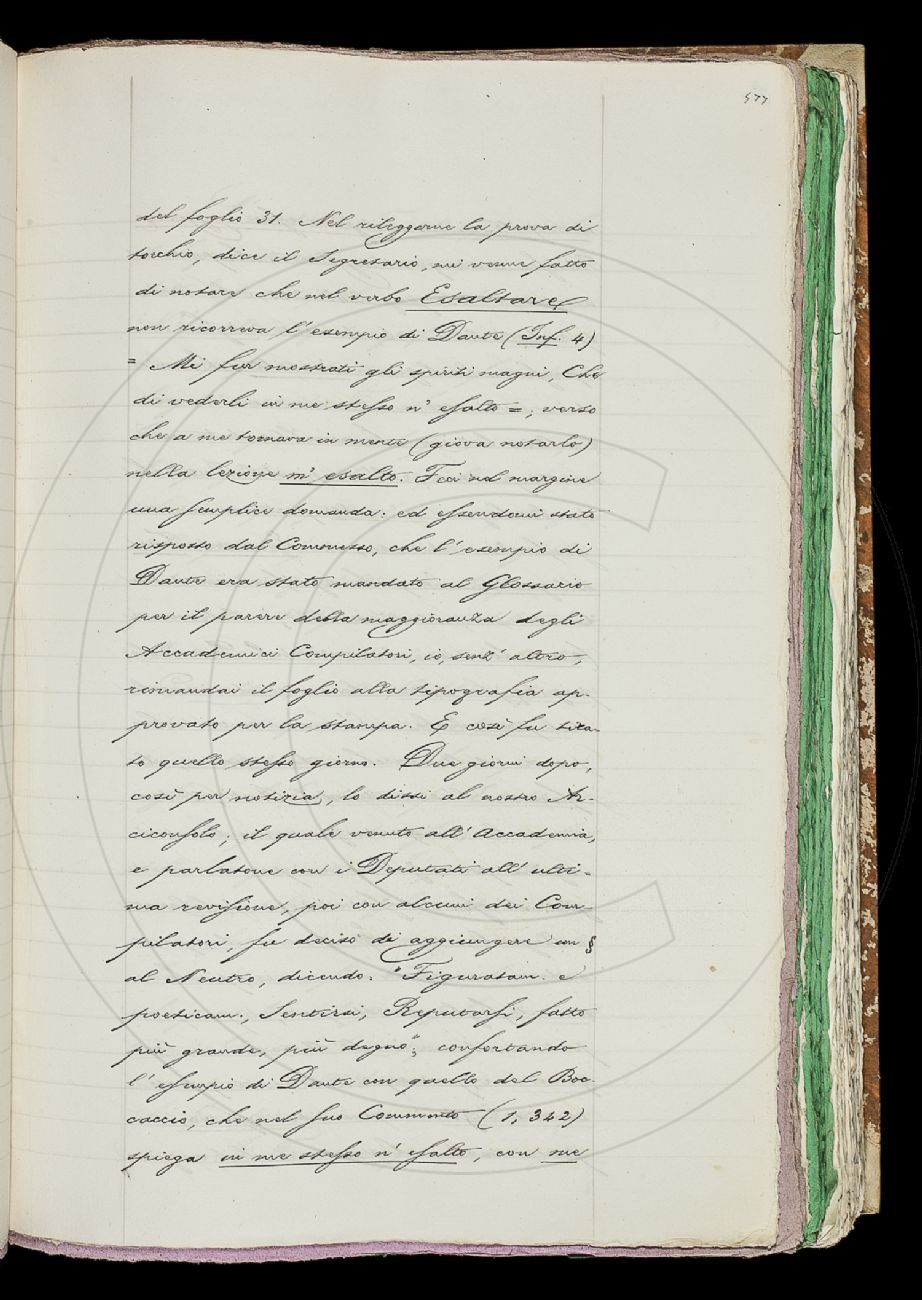 577
del foglio 31. Nel rileggerne la prova di
torchio, dice il Segretario, mi venne fatto
di notare che nel verbo Esaltare
non ricorreva l'esempio di Dante (Inf. 4)
= Mi fur mostrati gli spiriti magni, Che
di vederli in me stesso n' esalto =, verso
che a me tornava in mente (giova notarlo)
nella lezione m' esalto. Feci nel margine
una semplice domanda: ed essendomi stato
risposto dal Commesso, che l'esempio di
Dante era stato mandato al Glossario
per il parere della maggioranza degli
Accademici Compilatori, io, senz' altro,
rimandai il foglio alla tipografia ap-
provato per la stampa. E così fu tira-
to quello stesso giorno. Due giorni dopo,
così per notizia, lo dissi al nostro Ar-
ciconsolo; il quale venuto all' Accademia,
e parlatone con i Deputati all' ulti-
ma revisione, poi con alcuni dei Com-
pilatori, fu deciso di aggiungere un §
al Neutro, dicendo: "Figuratam. e
poeticam., Sentirsi, Reputarsi, fatto
più grande, più degno"; confortando
l' esempio di Dante con quello del Boc-
caccio, che nel suo Commento (1, 342)
spiega in me stesso n' esalto, con me